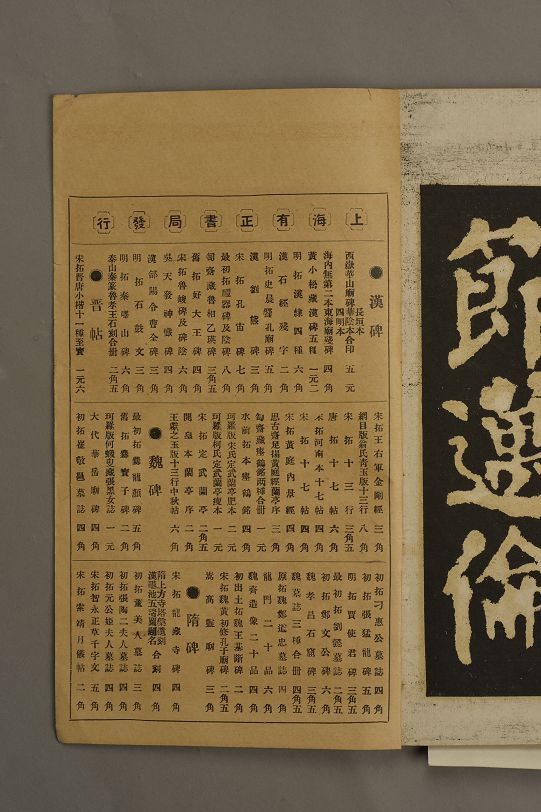 上海有正書局發行
●漢碑
西嶽華山廟碑長垣本華陰本四明本合印 五元
海內無第二本東海廟殘碑 四角
黃小松藏漢碑五種 一元二
明拓漢隸四種 六角
漢石經殘字 二角
明拓史晨饗孔廟碑 五角
漢劉熊碑 三角
宋拓孔宙碑 七角
最初拓禮器碑及陰 八角
匋齋藏魯相乙瑛碑 三角五
舊拓好大王碑 四角
宋拓魯峻碑及碑陰 六角
吳天發神讖碑 四角
漢郃陽令曹全碑 三角
明拓石鼓文 三角
明拓秦嶧山碑 六角
泰山秦篆魯孝王石刻合冊 二角五
●晉帖
宋拓晉唐小楷十一種至寶 一元六
宋拓王右軍金剛經 三角
網目版翁氏靑玉版十三行 八角
宋拓十三行 三角五
唐拓十七帖 六角
宋拓河南本十七帖 四角
宋拓十七帖 四角
宋拓黃庭內景經 四角
思古齋足搨黃庭經蘭亭序 三角
匋齋藏瘞鶴銘兩種合冊 一元
水前拓本瘞鶴銘 四角
珂羅版宋氏定武蘭亭肥本 二元
珂羅版柯氏定武蘭亭瘦本 一元
宋拓定武蘭亭 二角五
開皇本蘭亭序 二角
王獻之玉版十三行中秋帖 六角
●魏碑
最初拓爨龍顏碑 五角
舊拓爨寶子碑 二角
珂羅版何蝯叟藏張黑女誌 一元
大代華岳廟碑 四角
初拓崔敬邕墓誌 四角
初拓刁惠公墓誌 四角
初拓張猛龍碑 五角
明拓賈使君碑 三角五
最初拓劉懿墓誌 二角五
初拓鄭文公碑 六角
魏孝昌石窟碑 三角五
魏墓誌三種合冊 四角五
原拓魏鄭道忠墓誌 四角
龍門二十品 六角
魏齊造像二十品 四角
初出土拓魏王基斷碑 二角
宋拓魏黃初修孔子廟碑 二角五
嵩高靈廟碑 三角
●隋碑
宋拓龍藏寺碑 四角
隋上方寺塔盤造刻漢鴈池五瑞圖題名 合刻 四角
初拓董美人墓誌 三角
初拓張陶二夫人墓誌 四角
初拓元公姬夫人墓誌 四角
宋拓智永正草千字文 五角
宋拓索靖月儀帖 二角
節邁倫